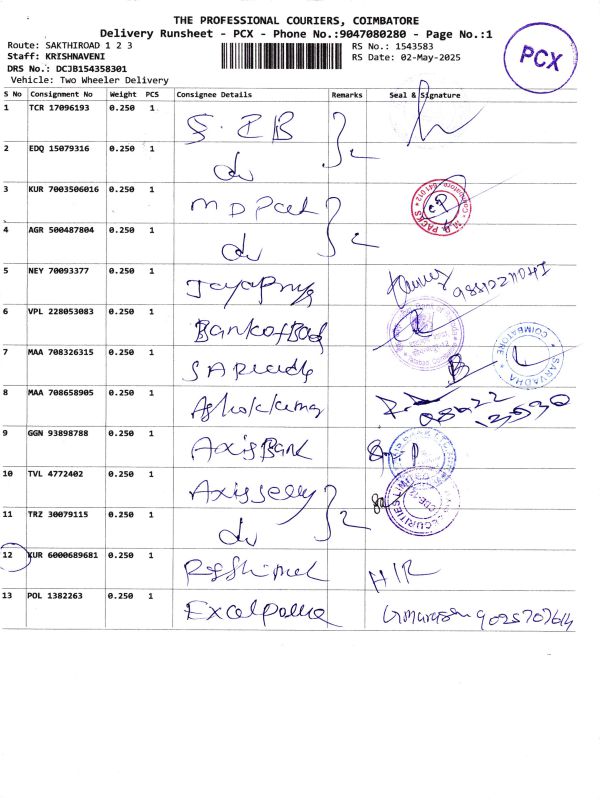 THE PROFESSIONAL COURIERS, COIMBATORE
Delivery Runsheet - PCX - Phone No.:9047080280 - Page No.:1
Route: SAKTHIROAD 1 2 3
RS No.: 1543583
Staff: KRISHNAVENI
RS Date: 02-May-2025
DRS No.: DCJB154358301
Vehicle: Two Wheeler Delivery
PCX
S No Consignment No Weight PCS Consignee Details Remarks Seal & Signature
1 TCR 17096193 0.250 1 S.I.B
2 EDQ 15079316 0.250 1 du 2
3 KUR 7003506016 0.250 1 M D Pack
M.D. PACKS
4 AGR 500487804 0.250 1 du 2
5 NEY 70093377 0.250 1
6 VPL 228053083 0.250 1 Bank of Bad
7 MAA 708326315 0.250 1
SARVADHA COIMBATORE
8 MAA 708658905 0.250 1 Ashokkumar
9 GGN 93898788 0.250 1 Axis Bank
10 TVL 4772402 0.250 1 Axis
11 TRZ 30079115 0.250 1 du 2
12 KUR 6000689681 0.250 1 HIR
13 POL 1382263 0.250 1 9025707614